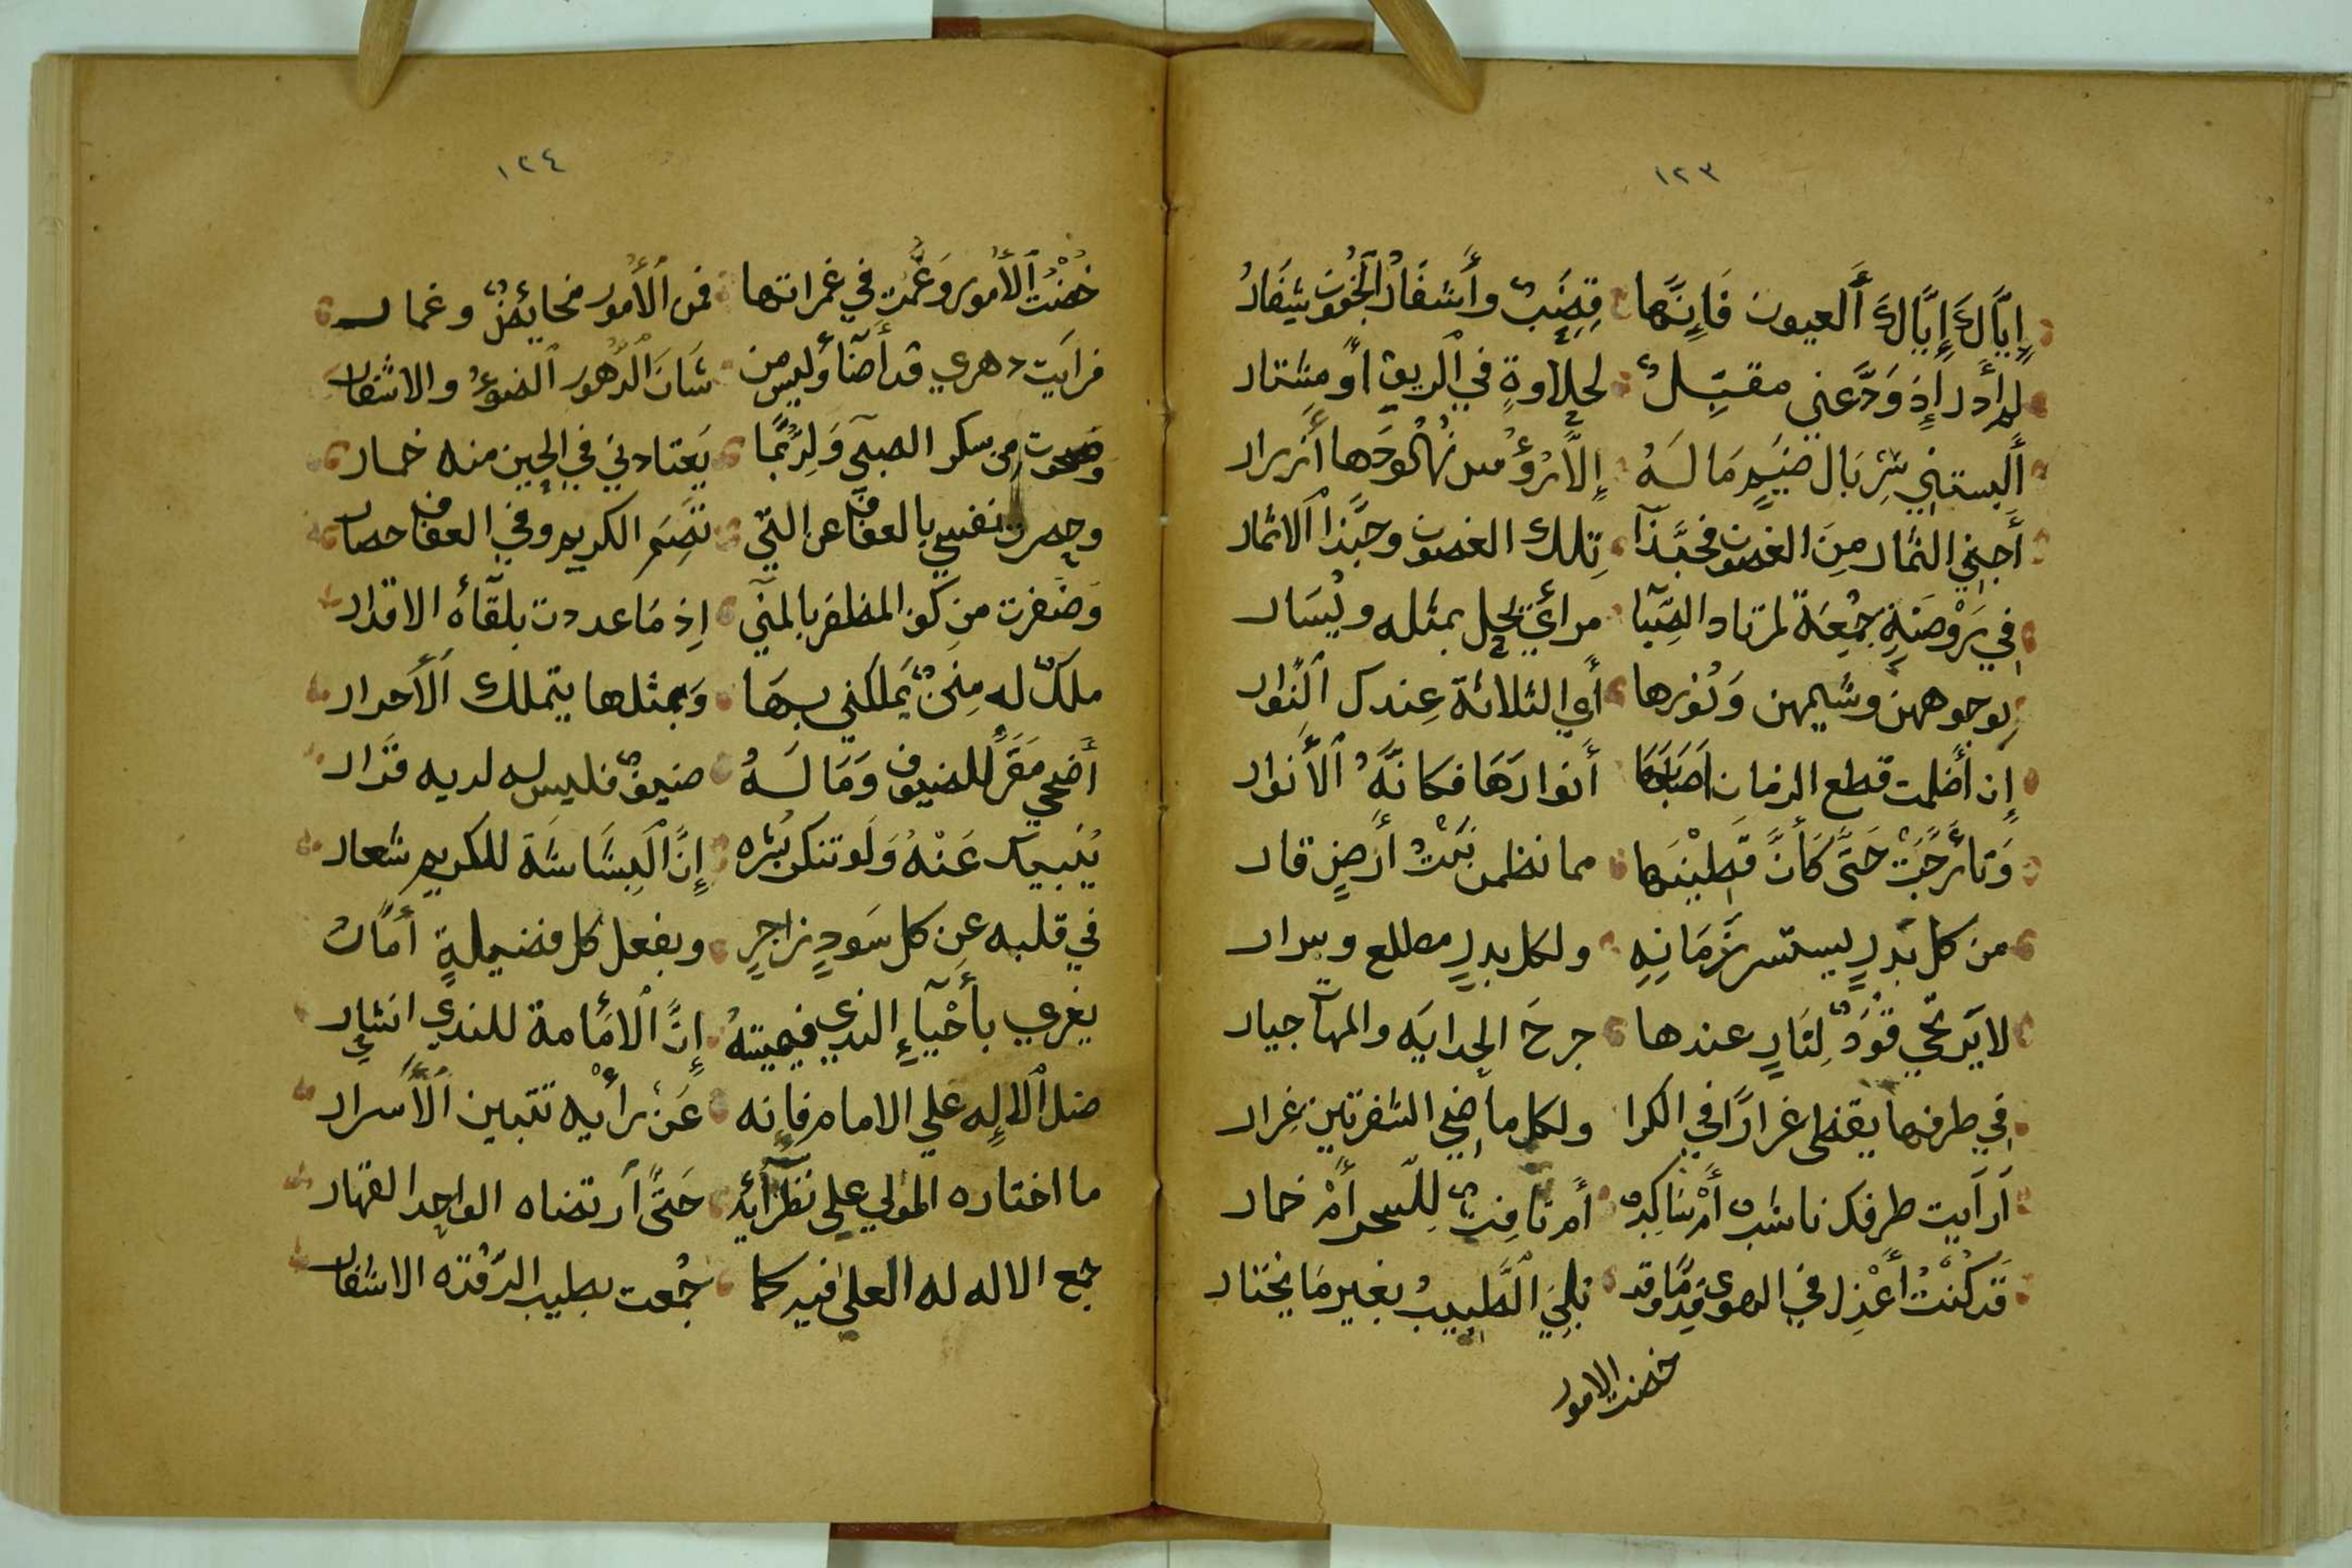 ١٢٣
إِيَّاكَ إِيَّاكَ ٱلعيون فَإِنَّها قضبٌ وأَشفَارُ ٱلجُفُون شِفَارُ
لم أدر إِذ وَدَّعني مقبِّلٌ لحلاوةٍ في ٱلريق أو مشتار
أَلبستني سِرْبَال ضَيْمٍ مَا لَهُ إِلَّا رؤُس نُهُودها أَزرار
أَجني الثمار مِنَ الغصون فحبَّذآ تِلك الغصون وحبَّذا ٱلاثمار
في رَوْضَةٍ جمعَة لمرتاد الصِّبا مرأي يحل بمثله ويُسَار
بوجوههن وشيمهن وَنُورها أَي الثلاثة عِندك ٱلنُّوار
إِن أَظلمت قطع الزمان أصَابَهَا أَنوارهَا فكانَّهُ ٱلأَنوار
وَتأرَّجَتْ حَتَّى كَأَنَّ قَطِينَها مما نظمن بَنَتْ أَرضٍ قار
من كل بَدرٍ يستسر زَمَانِهِ ولكل بدرٍ مطلع وسرار
لا يَرتجي قَوَدٌ لِثَارٍ عندها جرحَ الجدايَه والمهآ جبار
في طرفها يقظى غرارًا في الكرا ولكل ماضي الشفرتين غِرار
أَرأَيت طرفك ناشبٌ أَمْ ناكبٌ أَم نافثٌ لِلسحر أَمْ خمار
قَد كُنْتُ أَعْذِل في الهوى قِدمًا وقد بُلِيَ ٱلطَّبِيبُ بغير مَا يختار
خضت الامور
١٢٤
خُضْتُ ٱلأُمور وَعُمْتُ في غمراتها فمن ٱلأُمور مخائِضٌ وغمار
فرأَيت دهري قد أَضآ وليس من شَان ٱلدُّهُور ٱلضوءُ والاشفار
وصحوت من سكر الصبى وَلرُبَّمَا يَعتادني في الحين منه خمار
وحصرت نفسي بالعفاف عن التي تصِمَ الكريم وفي العفاف حصار
وَضفرت من كف المظفر بالمنى إِذ مَا عددت بلقآه الاقدار
ملكٌ له مِنَنٌ يَملكني بهَا وَبمثلها يتملك ٱلأَحرار
أَضحى مَقَرًّا للضيوف وَمَا لَهُ ضيفٌ فليس له لديه قَرار
يُنبيك عَنْهُ وَلَو تنكر بِشْره إِنَّ ٱلبشَاشَة للكريم شعار
في قلبه عن كل سَودٍ زاجرٍ وبفعل كل فضيلةٍ أَمَّارُ
يغري بأَحْيآءٍ الندى فيميتهُ إِنَّ ٱلامَامة للندى انشار
ضل ٱلالٰه على الامام فإِنه عَنْ رأْيه تتبين ٱلأَسرار
ما اختاره المولى على نظرآئه حَتَّى ٱرتضاه الواحد القهار
جمع الاله له العلى فيه كما جُمعت بطيب الرَّقده الاشفار